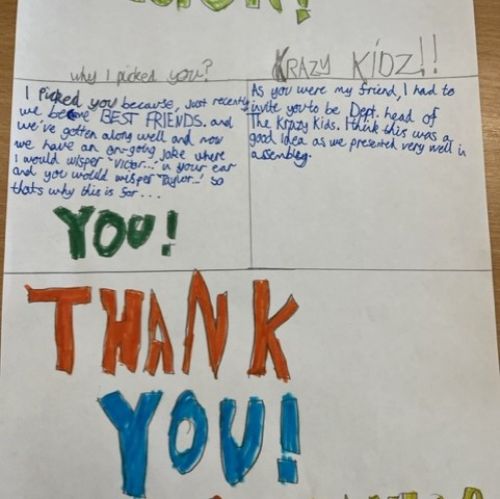 why I picked you?
I picked you because, just recently
we became BEST FRIENDS. and
we've gotten along well and now
we have an on-going joke where
I would wisper "Victor..." in your ear
and you would wisper "Taylor..." so
thats why this is for...
YOU!
KRAZY KIDZ!!
As you were my friend, I had to
invite you to be Dept. head of
The Krazy Kids. I think this was a
good Idea as we presented very well in
assembley.
THANK
YOU!